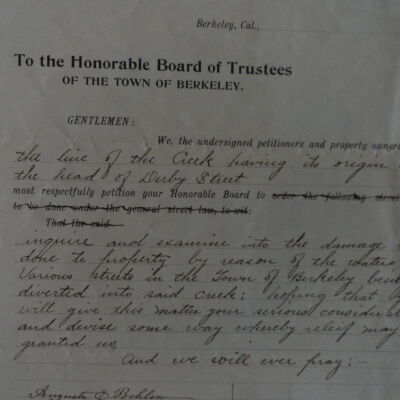 Berkeley, Cal.,
To the Honorable Board of Trustees
OF THE TOWN OF BERKELEY.
GENTLEMEN:
We, the undersigned petitioners and property owners
the line of the Creek having its origin
the head of Derby Street
most respectfully petition your Honorable Board to order the following street
to be done under the general street law, to-wit:
That the said
inquire and examine into the damage
done to property by reason of the waters
Various streets in the Town of Berkeley being
diverted into said creek: hoping that
will give this matter your serious consider
and devise some way whereby relief may
granted us,
And we will ever pray:-